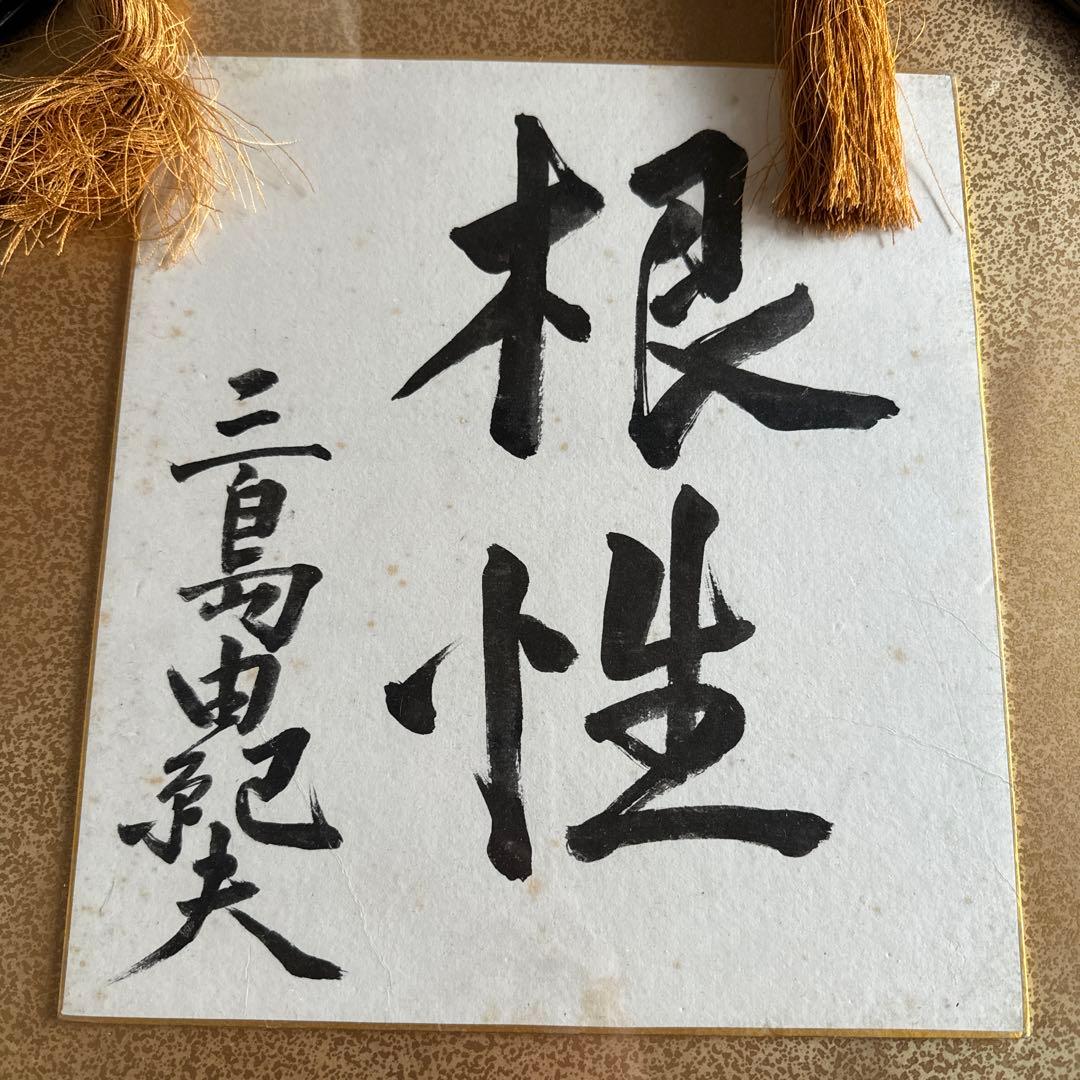 根性
三島由紀夫